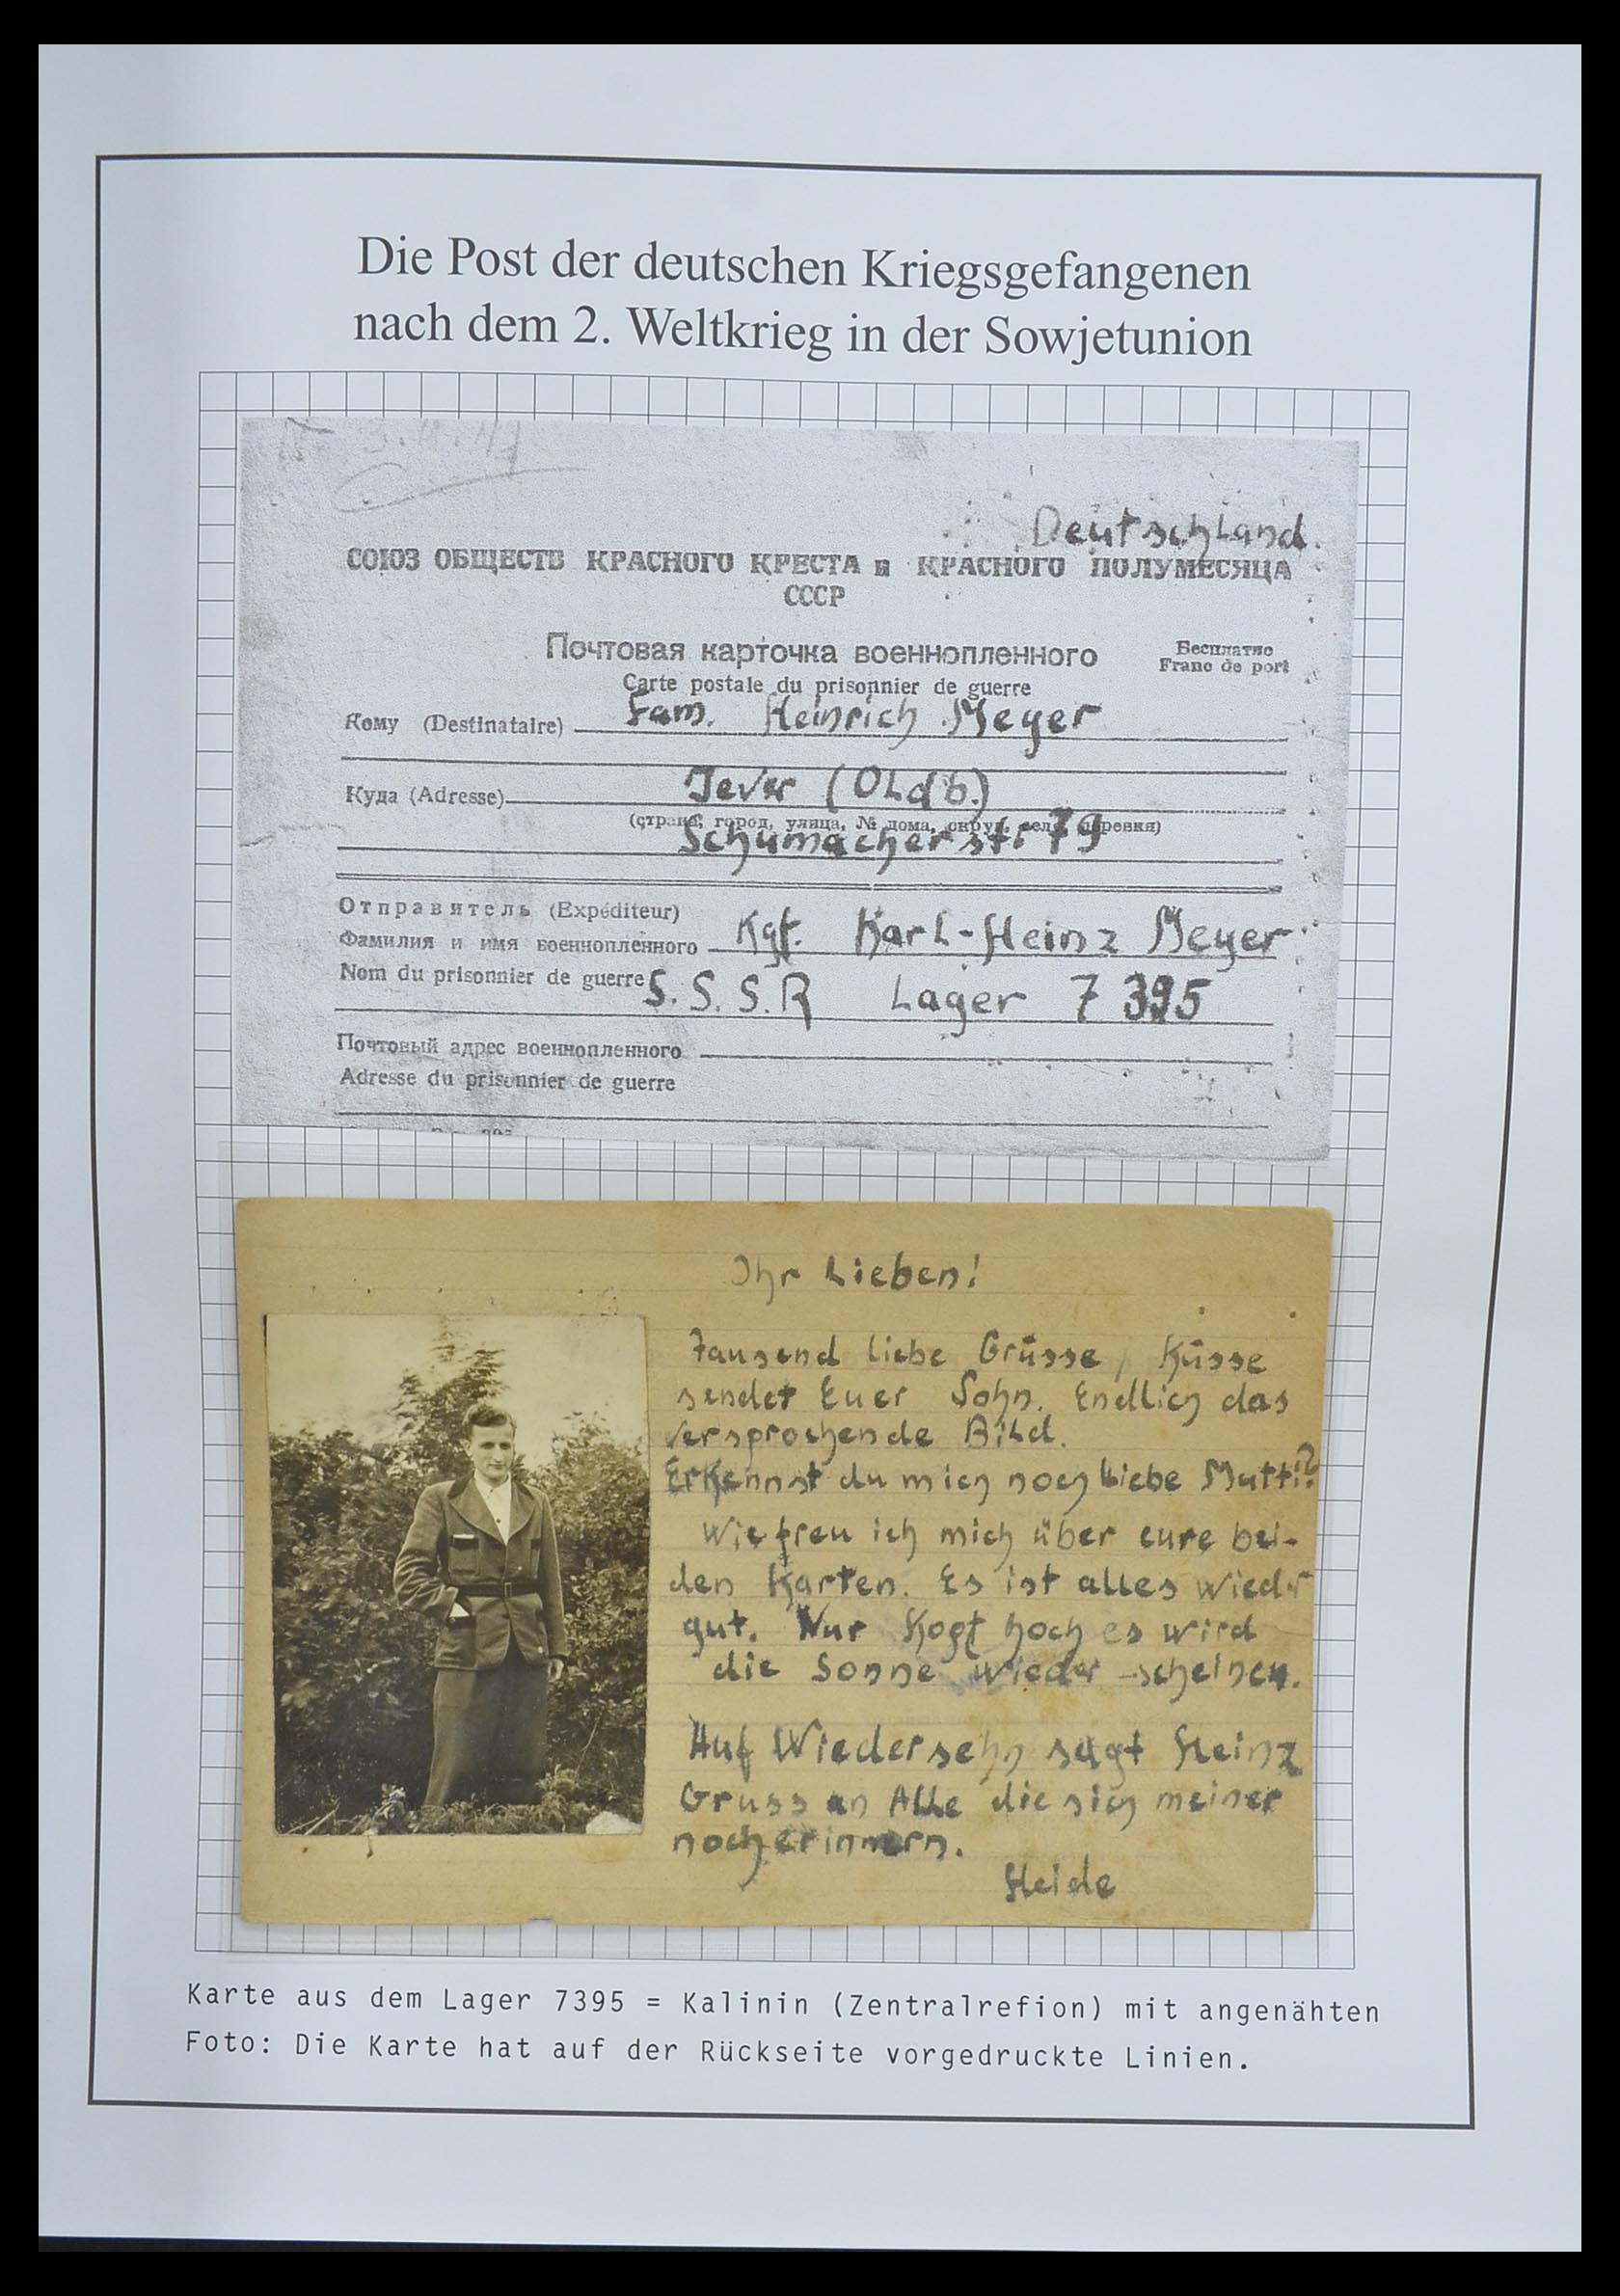 Die Post der deutschen Kriegsgefangenen
nach dem 2. Weltkrieg in der Sowjetunion
Deutschland.
СОЮЗ ОБЩЕСТВ КРАСНОГО КРЕСТА и КРАСНОГО ПОЛУМЕСЯЦА
СССР
Почтовая карточка военнопленного
Бесплатно
Franc de port
Carte postale du prisonnier de guerre
Кому (Destinataire) Fam. Heinrich Meyer
Куда (Adresse) Jever (Oldb.)
(страна, город, улица, № дома, округ, село, деревня)
Schumacherstr 79
Отправитель (Expéditeur)
Фамилия и имя военнопленного Kgf. Karl-Heinz Meyer
Nom du prisonnier de guerre S.S.S.R Lager 7395
Почтовый адрес военнопленного
Adresse du prisonnier de guerre
Ihr Lieben!
Tausend liebe Grüsse, Küsse
sendet Euer Sohn. Endlich das
versprochende Bild.
Erkennst du mich noch liebe Mutti?
Wie freu ich mich über eure bei-
den Karten. Es ist alles wieder
gut. Nur Kopf hoch es wird
die Sonne wieder scheinen.
Auf Wiedersehn sagt Heinz
Gruss an Alle die sich meiner
noch erinnern.
Heide
Karte aus dem Lager 7395 = Kalinin (Zentralrefion) mit angenähten
Foto: Die Karte hat auf der Rückseite vorgedruckte Linien.